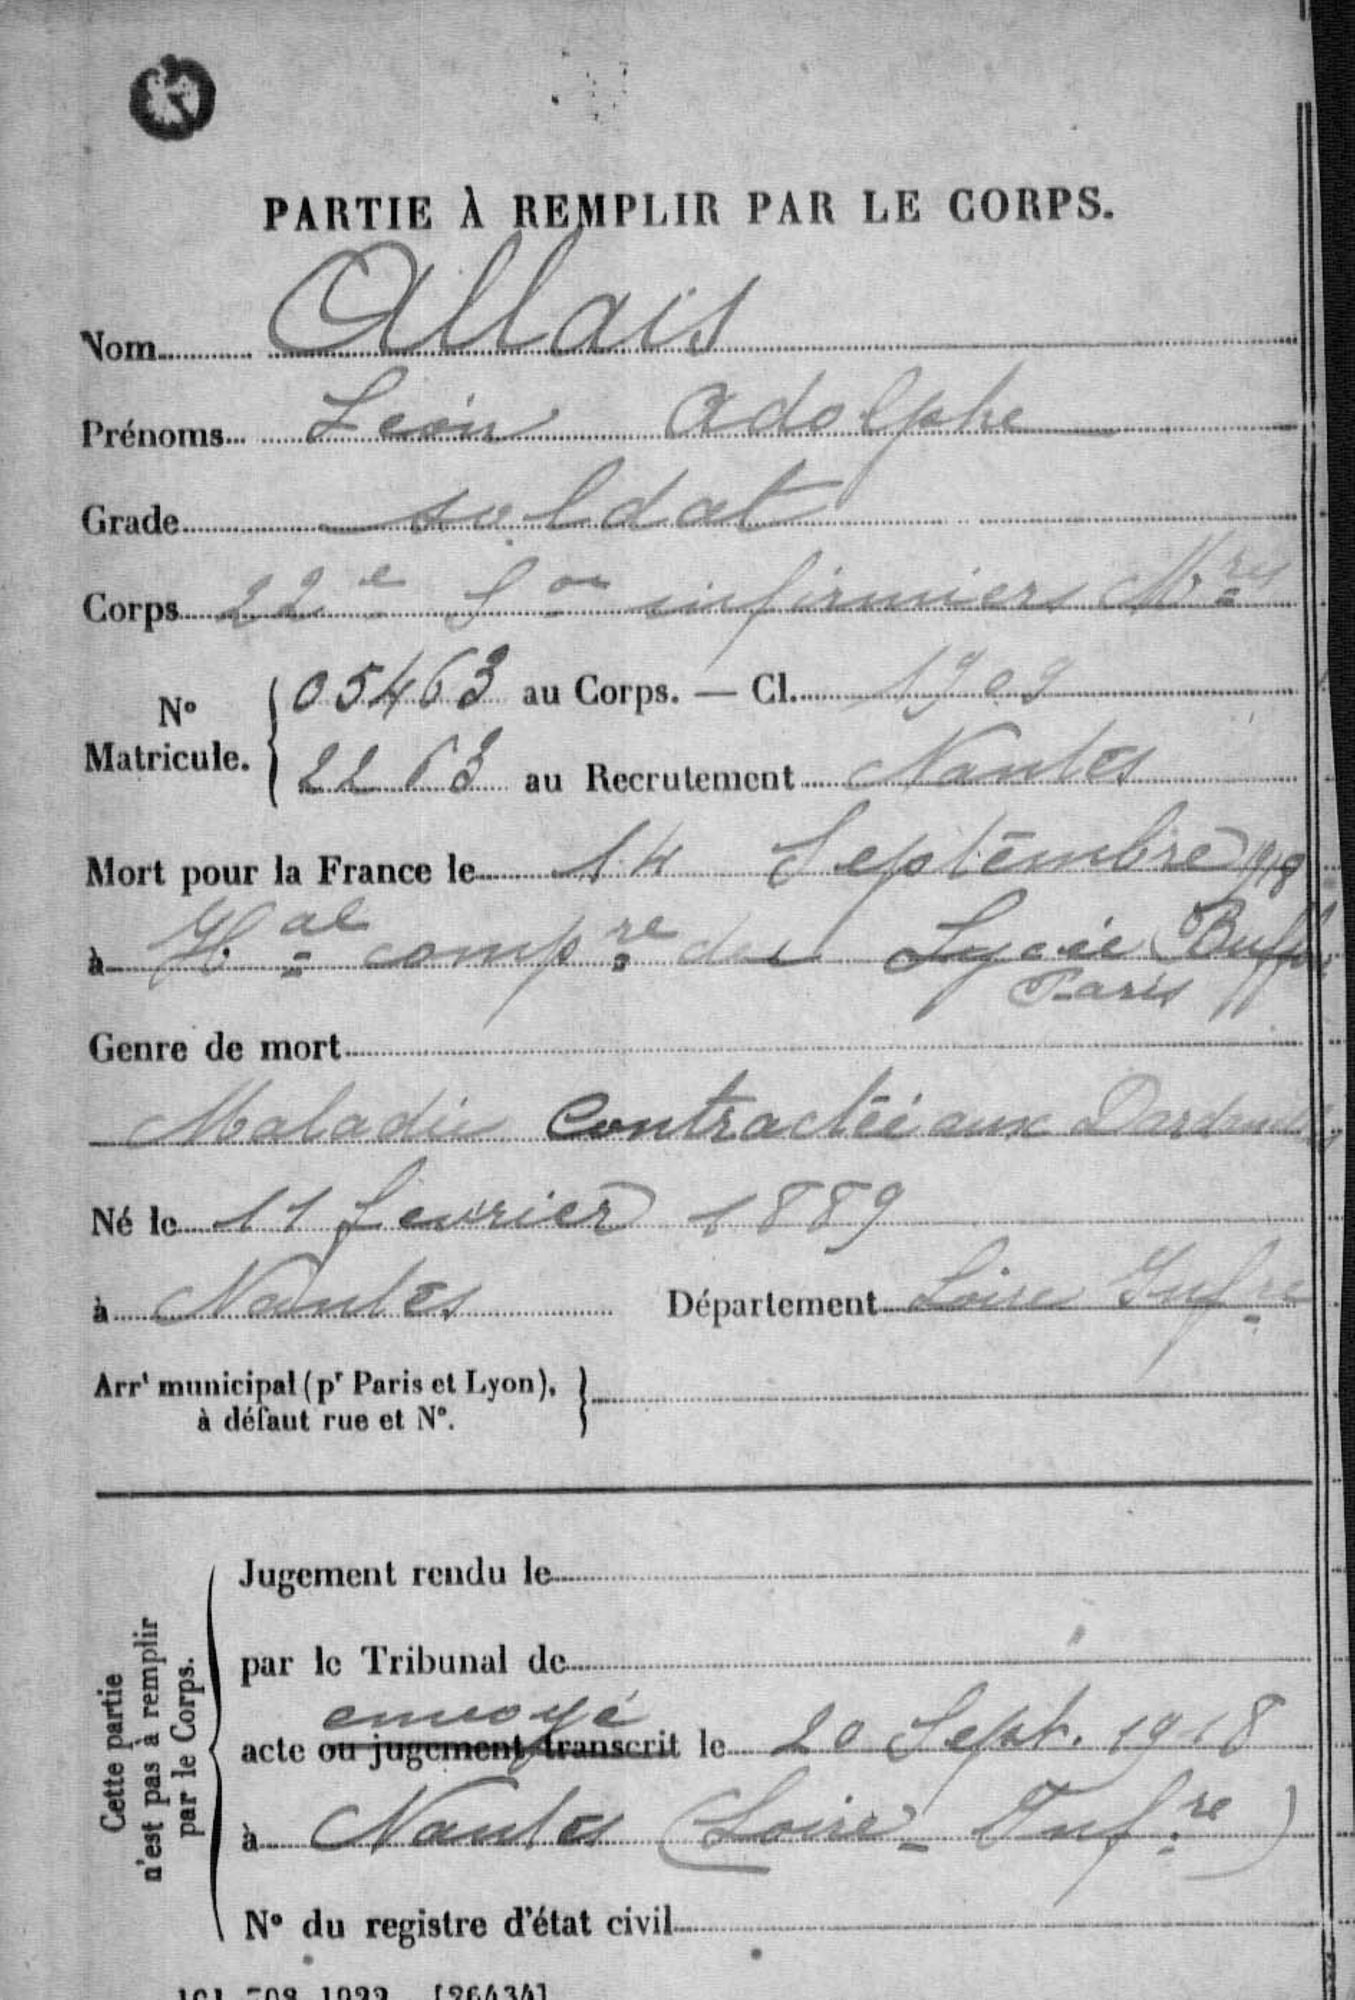 PARTIE À REMPLIR PAR LE CORPS.
Nom Allais
Prénoms Léon Adolphe
Grade soldat
Corps 22e Son infirmiers Mres
N° Matricule. { 05463 au Corps. — Cl. 1909
2263 au Recrutement Nantes
Mort pour la France le 14 Septembre 1918
à Hal compre du Lycée Buffon
Paris
Genre de mort
Maladie Contractée aux Dardanelles
Né le 11 fevrier 1889
à Nantes Département Loire Infre
Arrt municipal (pr Paris et Lyon),
à défaut rue et N°.
Cette partie
n'est pas à remplir
par le Corps.
Jugement rendu le
par le Tribunal de
envoyé
acte ou jugement transcrit le 20 Sept. 1918
à Nantes (Loire-Infre)
N° du registre d'état civil
708. 1922. [26434]